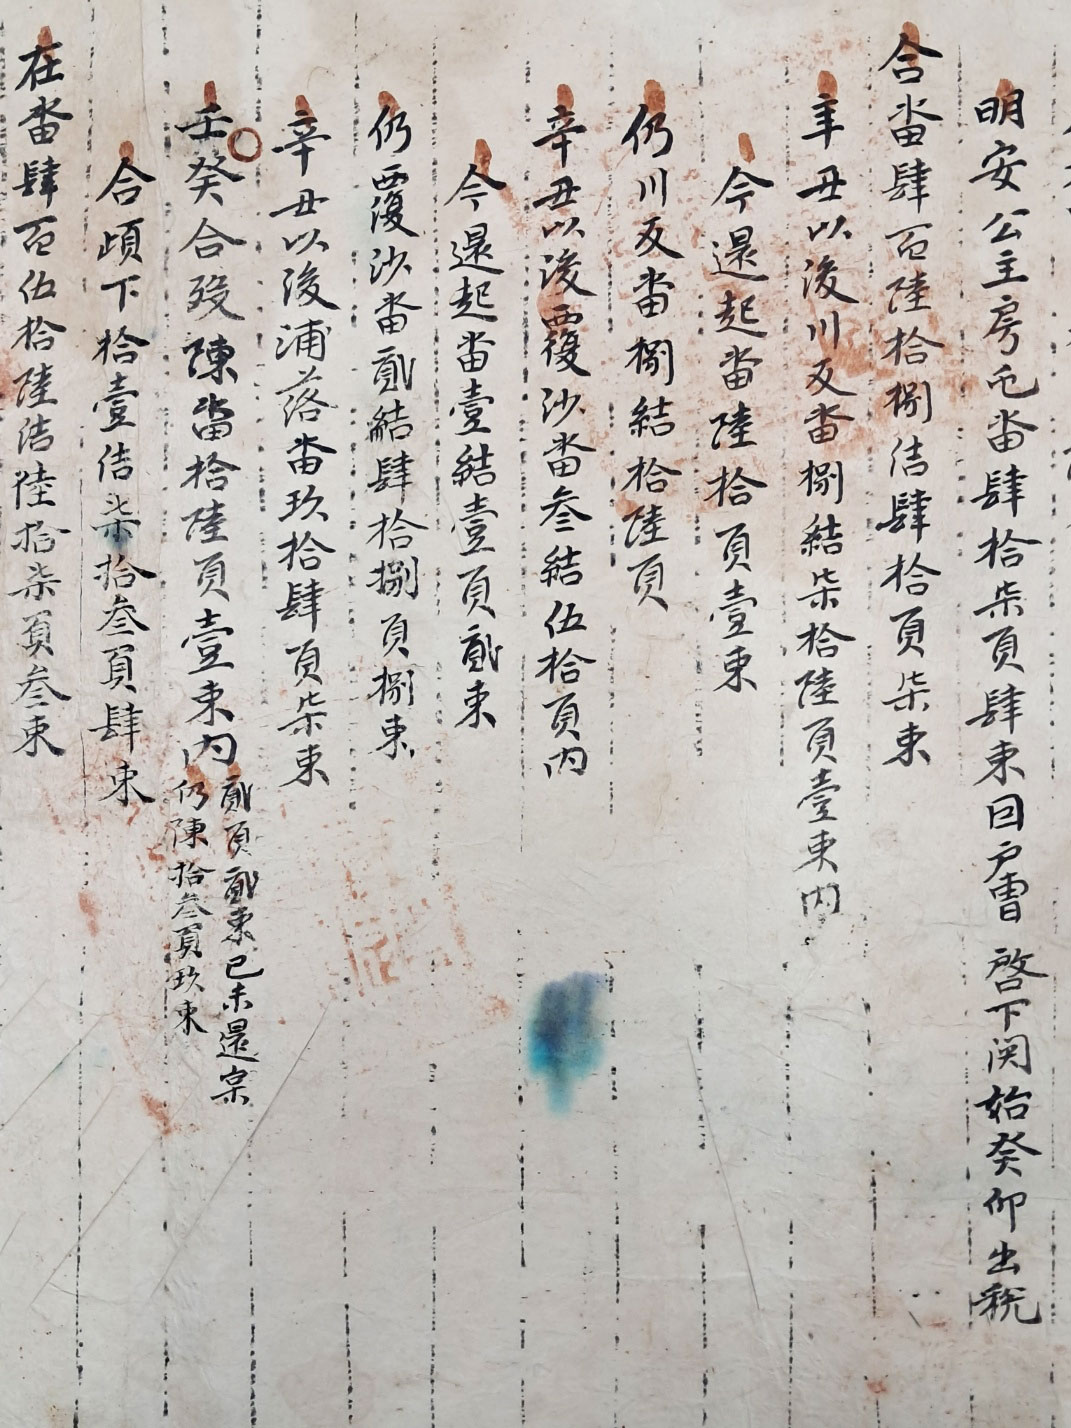 明安公主房屯畓肆拾柒負肆束因戶曹 啓下関始癸卯出稅
合畓肆百陸拾捌結肆拾負柒束
辛丑以後川反畓捌結柒拾陸負壹束內
今還起畓陸拾負壹束
仍川反畓捌結拾陸負
辛丑以後覆沙畓叁結伍拾負內
今還起畓壹結壹負貳束
仍覆沙畓貳結肆拾捌負捌束
辛丑以後浦落畓玖拾肆負柒束
壬癸合歿陳畓拾陸負壹束內
貳負貳束已未還宗
仍陳拾叁負玖束
合頉下拾壹結柒拾叁負肆束
在畓肆百伍拾陸結陸拾柒負叁束